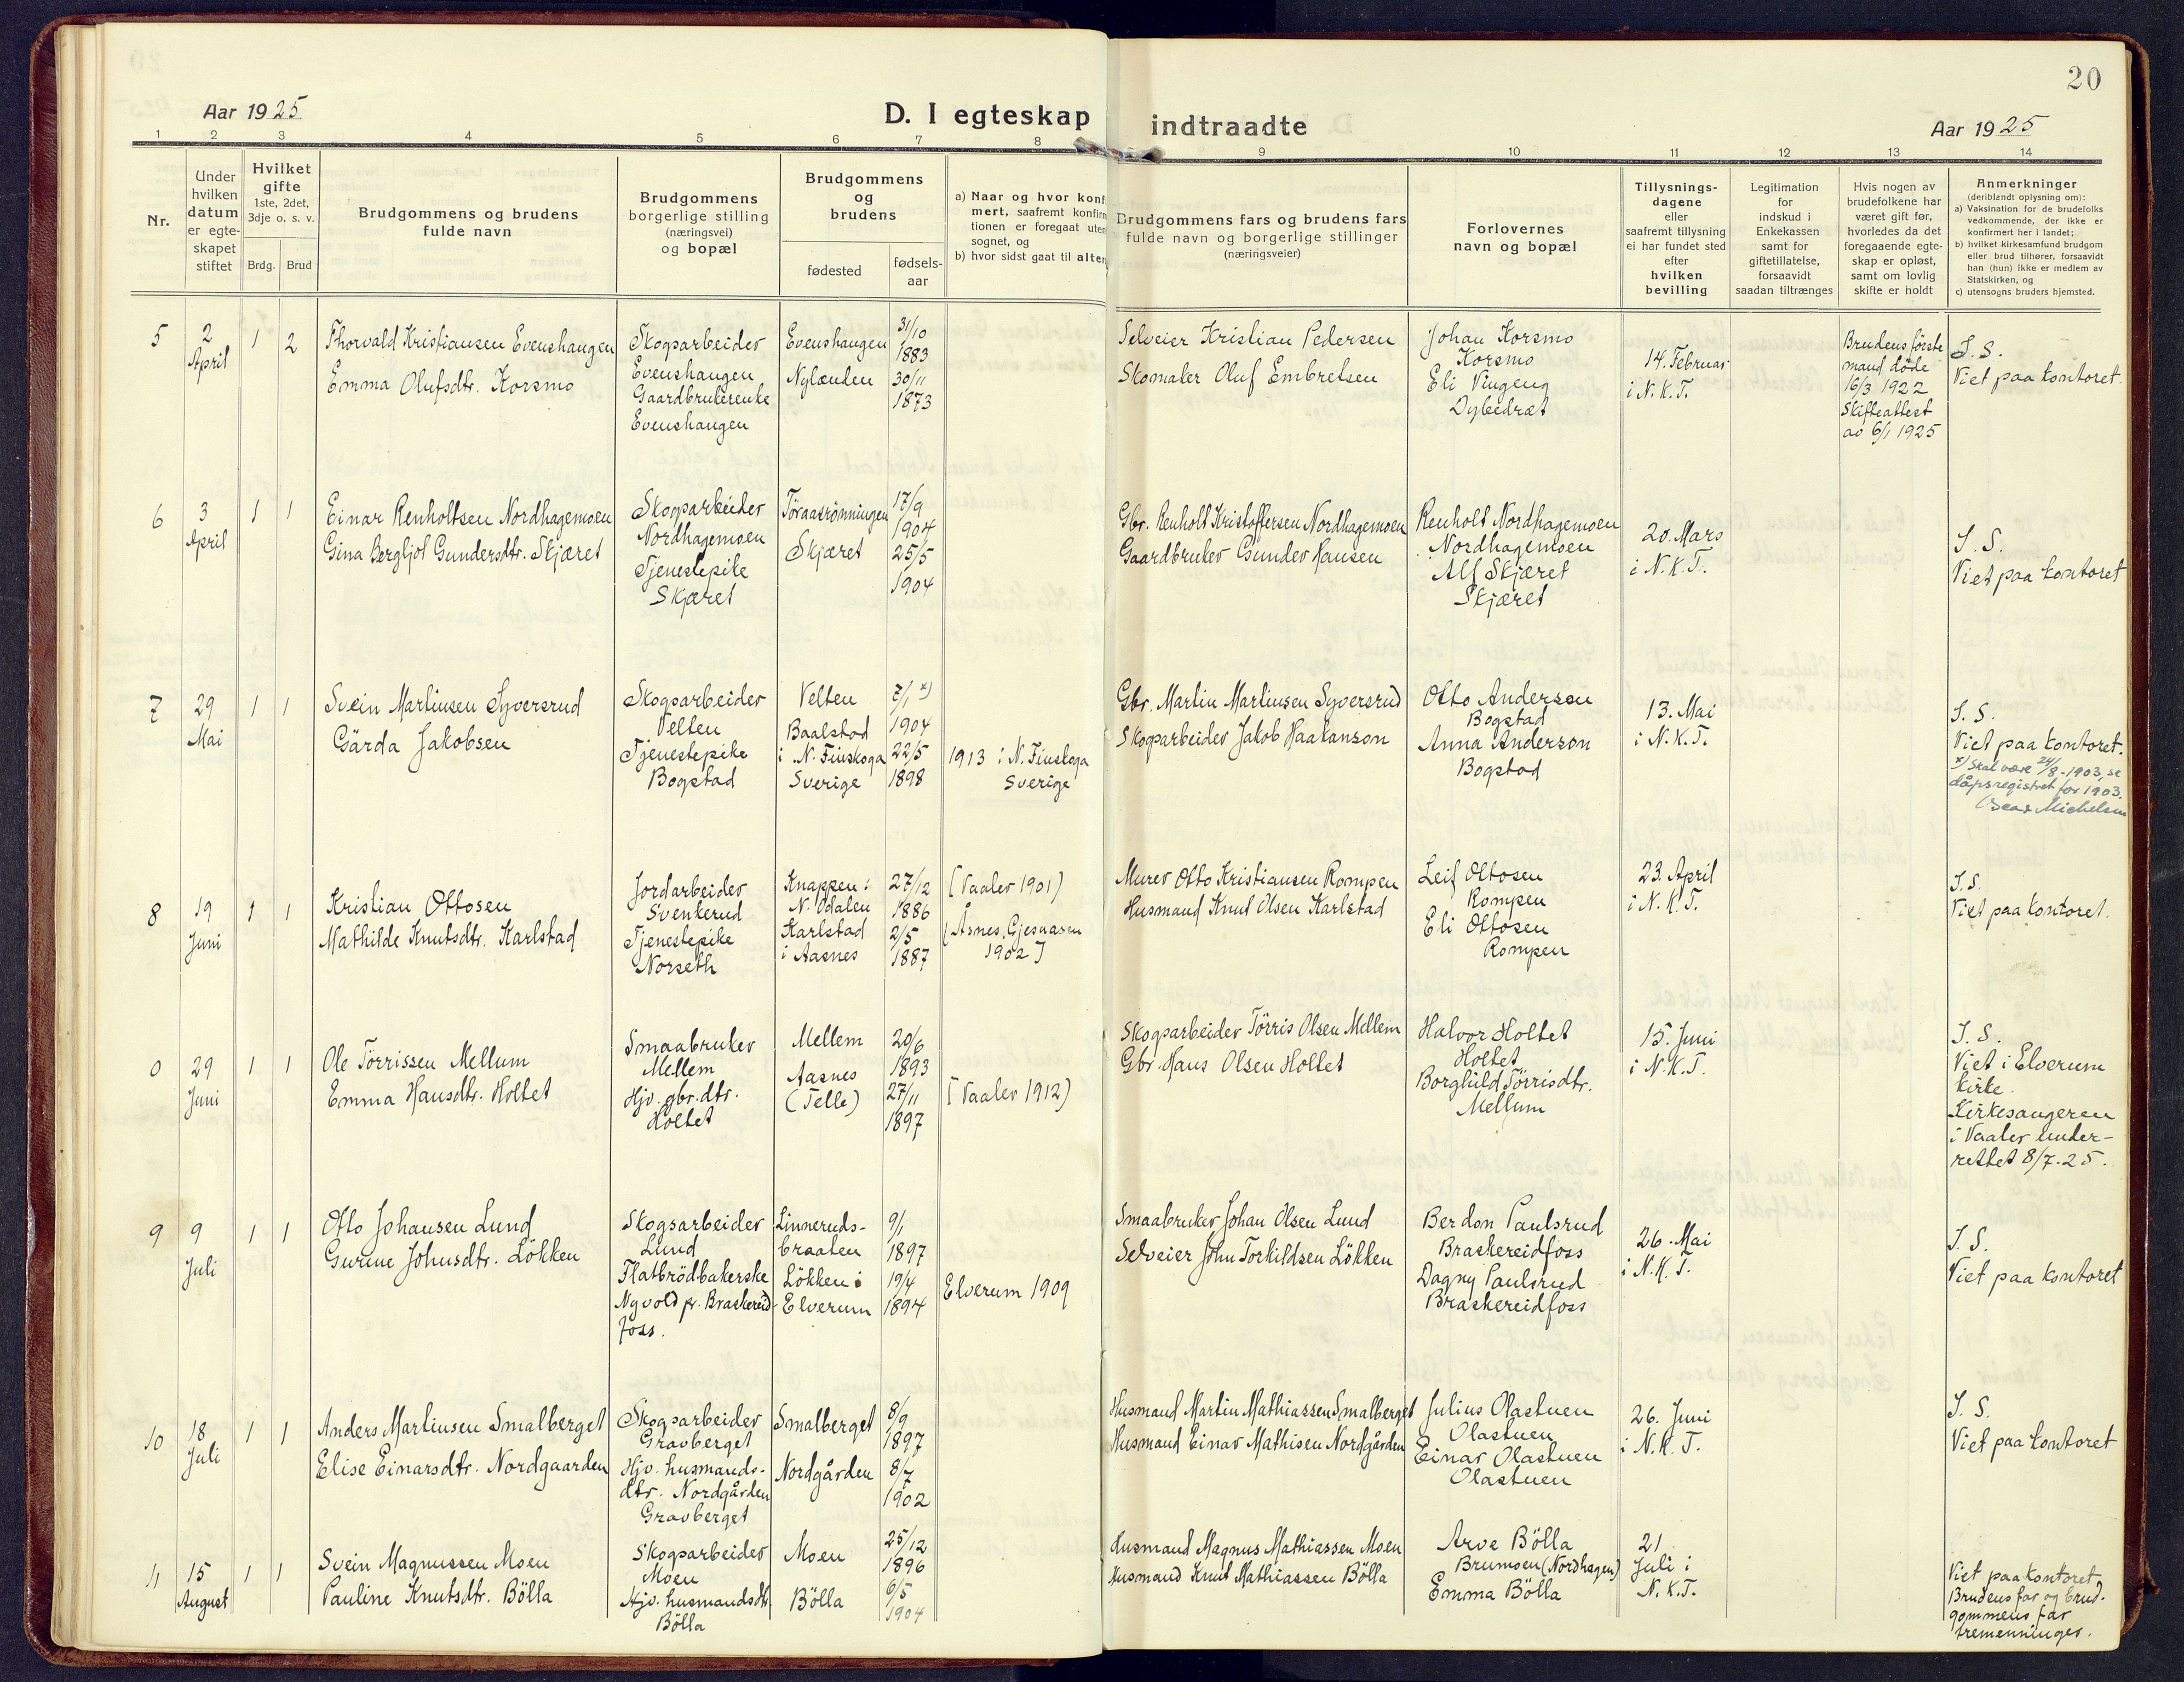 20
Aar 1925
D. I egteskap indtraadte
Aar 1925
1 2 3 4 5 6 7 8 9 10 11 12 13 14
Nr.
Under hvilken datum er egteskapet stiftet
Hvilket gifte 1ste, 2det, 3dje o. s. v.
Brdg. Brud
Brudgommens og brudens fulde navn
Brudgommens borgerlige stilling (næringsvei) og bopæl
Brudgommens og brudens
fødested
fødsels-aar
a) Naar og hvor konfi
mert, saafremt konfirm
tionen er foregaat uten
sognet, og
b) hvor sidst gaat til alter
Brudgommens fars og brudens fars
fulde navn og borgerlige stillinger
(næringsveier)
Forlovernes
navn og bopæl
Tillysnings-
dagene
eller
saafremt tillysning
ei har fundet sted
efter
hvilken
bevilling
Legitimation
for
indskud i
Enkekassen
samt for
giftetillatelse,
forsaavidt
saadan tiltrænges
Hvis nogen av
brudefolkene har
været gift før,
hvorledes da det
foregaaende egte-
skap er opløst,
samt om lovlig
skifte er holdt
Anmerkninger
(deriblandt oplysning om):
a) Vaksination for de brudefolks
vedkommende, der ikke er
konfirmert her i landet;
b) hvilket kirkesamfund brudgom
eller brud tilhører, forsaavidt
han (hun) ikke er medlem av
Statskirken, og
c) utensogns bruders hjemsted.
5
2
April
1 2
Thorvald Kristiansen Evenshaugen
Emma Olufsdtr. Korsmo
Skogsarbeider
Evenshaugen
Gaardbrukerenke
Evenshaugen
Evenshaugen
Nylænden
31/10
1883
30/11
1873
Selveier Kristian Pedersen
Skomaker Oluf Embretsen
Johan Korsmo
Korsmo
Eli Vingeng
Dybedræt
14. Februar
i N. K. T.
Brudens første
mand døde
16/3 1922
Skifteattest
av 6/1 1925
S. S.
Viet paa kontoret.
6
3
April
1 1
Einar Renholtsen Nordhagemoen
Gina Bergljot Gundersdtr. Skjæret
Skogsarbeider
Nordhagemoen
Tjenestepike
Skjæret
Töraasrönningen
Skjæret
17/9
1904
25/5
1904
Gbr. Renholt Kristoffersen Nordhagemoen
Gaardbruker Gunder Hansen
Renholt Nordhagemoen
Nordhagemoen
Alf Skjæret
Skjæret
20. Mars
i N. K. T.
S. S.
Viet paa kontoret
7
29
Mai
1 1
Svein Martinsen Syversrud
Gärda Jakobsen
Skogsarbeider
Velten
Tjenestepike
Bogstad
Velten
Baalstad
i N. Finskoga
Sverige
7/1 x)
1904
22/5
1898
1913 i N. Finskoga
Sverige
Gbr. Martin Martinsen Syversrud
Skogsarbeider Jakob Haakanson
Otto Andersen
Bogstad
Anna Anderson
Bogstad
13. Mai
i N. K. T.
S. S.
Viet paa kontoret.
x) Skal være 24/8-1903, se
dåpsregistret for 1903.
Michelsen
8
19
Juni
1 1
Kristian Ottosen
Mathilde Knutsdtr. Karlstad
Jordarbeider
Svenkerud
Tjenestepike
Norseth
Knappen i
N. Odalen
Karlstad
i Aasnes
27/12
1886
2/5
1887
[Vaaler 1901)
(Åsnes, Gjesaasen
1902]
Murer Otto Kristiansen Rompen
Husmand Knut Olsen Karlstad
Leif Ottosen
Rompen
Eli Ottosen
Rompen
23. April
i N. K. T.
S. S.
Viet paa kontoret.
0
29
Juni
1 1
Ole Törrissen Mellum
Emma Hansdtr. Holtet
Smaabruker
Mellem
Hjv. gbr. dtr.
Holtet
Mellem
Aasnes
(Telle)
20/6
1893
27/11
1897
[Vaaler 1912)
Skogsarbeider Törris Olsen Mellem
Gbr. Hans Olsen Holtet
Halvor Holtet
Holtet
Borghild Törrisdtr.
Mellum
15. Juni
i N. K. T.
S. S.
Viet i Elverum
kirke.
Kirkesangeren
i Vaaler under-
rettet 8/7-25.
9
9
Juli
1 1
Otto Johansen Lund
Gurine Johnsdtr. Lökken
Skogsarbeider
Lund
Flatbrödbakerske
Nyvold pr. Braskereid-
foss.
Linneruds-
braaten
Lökken i
Elverum
9/1
1897
19/4
1894
Elverum 1909
Smaabruker Johan Olsen Lund
Selveier John Torkildsen Lökken
Berdon Paulsrud
Braskereidfoss
Dagny Paulsrud
Braskereidfoss
26. Mai
i N. K. T.
S. S.
Viet paa kontoret
10
18
Juli
1 1
Anders Martinsen Smalberget
Elise Einarsdtr. Nordgaarden
Skogsarbeider
Gravberget
Hjv. husmands-
dtr. Nordgården
Gravberget
Smalberget
Nordgården
8/9
1897
8/7
1902
Husmand Martin Mathiassen Smalberget
Husmand Einar Mathisen Nordgården
Julius Olastuen
Olastuen
Einar Olastuen
Olastuen
26. Juni
i N. K. T.
S. S.
Viet paa kontoret
11
15
August
1 1
Svein Magnussen Moen
Pauline Knutsdtr. Bölla
Skogsarbeider
Moen
Hjv. husmandsdtr.
Bölla
Moen
Bölla
25/12
1896
6/5
1904
Husmand Magnus Mathiassen Moen
Husmand Knut Mathiassen Bölla
Arve Bölla
Brumoen (Nordhagen)
Emma Bölla
21
Juli i
N. K. T.
Viet paa kontoret
Brudens far og brud-
gommens far
tremenninger.